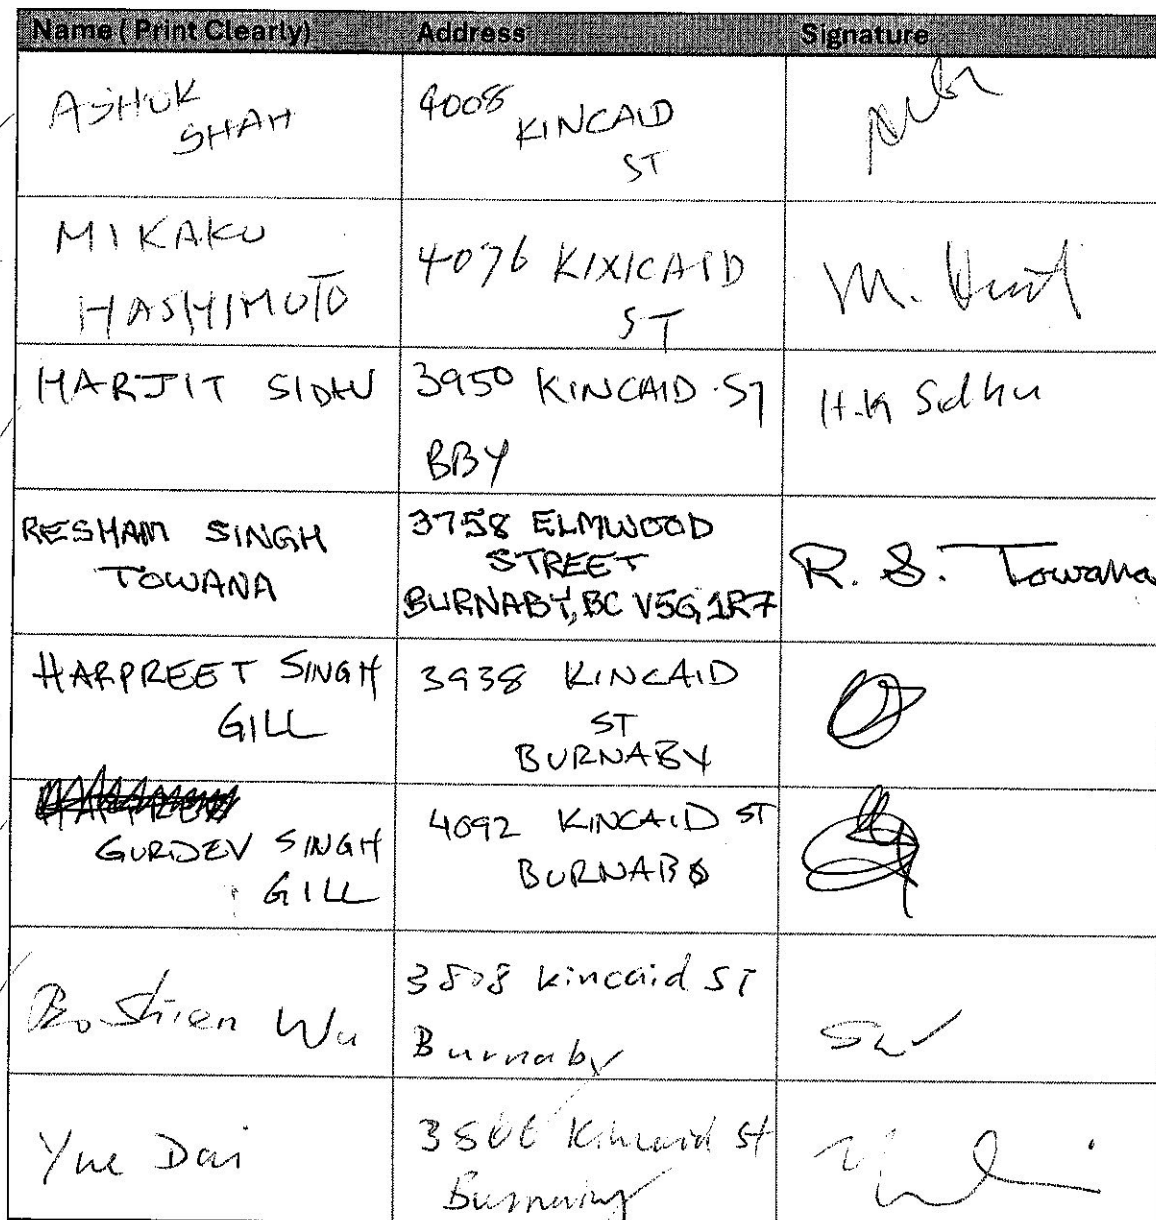 Name ( Print Clearly) Address Signature
ASHOK
SHAH
4008
KINCAID
ST
MIKAKU
HASHIMOTO
4076 KIXICAID
ST
M.
HARJIT SIDHU
3950 KINCAID ST
BBY
H.K Sidhu
RESHAM SINGH
TOWANA
3758 ELMWOOD
STREET
BURNABY, BC V5G 1R7
R. S. Towana
HARPREET SINGH
GILL
3938 KINCAID
ST
BURNABY
GURDEV SINGH
GILL
4092 KINCAID ST
BURNABY
Bo Shien Wu
3808 Kincaid ST
Burnaby
Yue Dai
Kincaid St